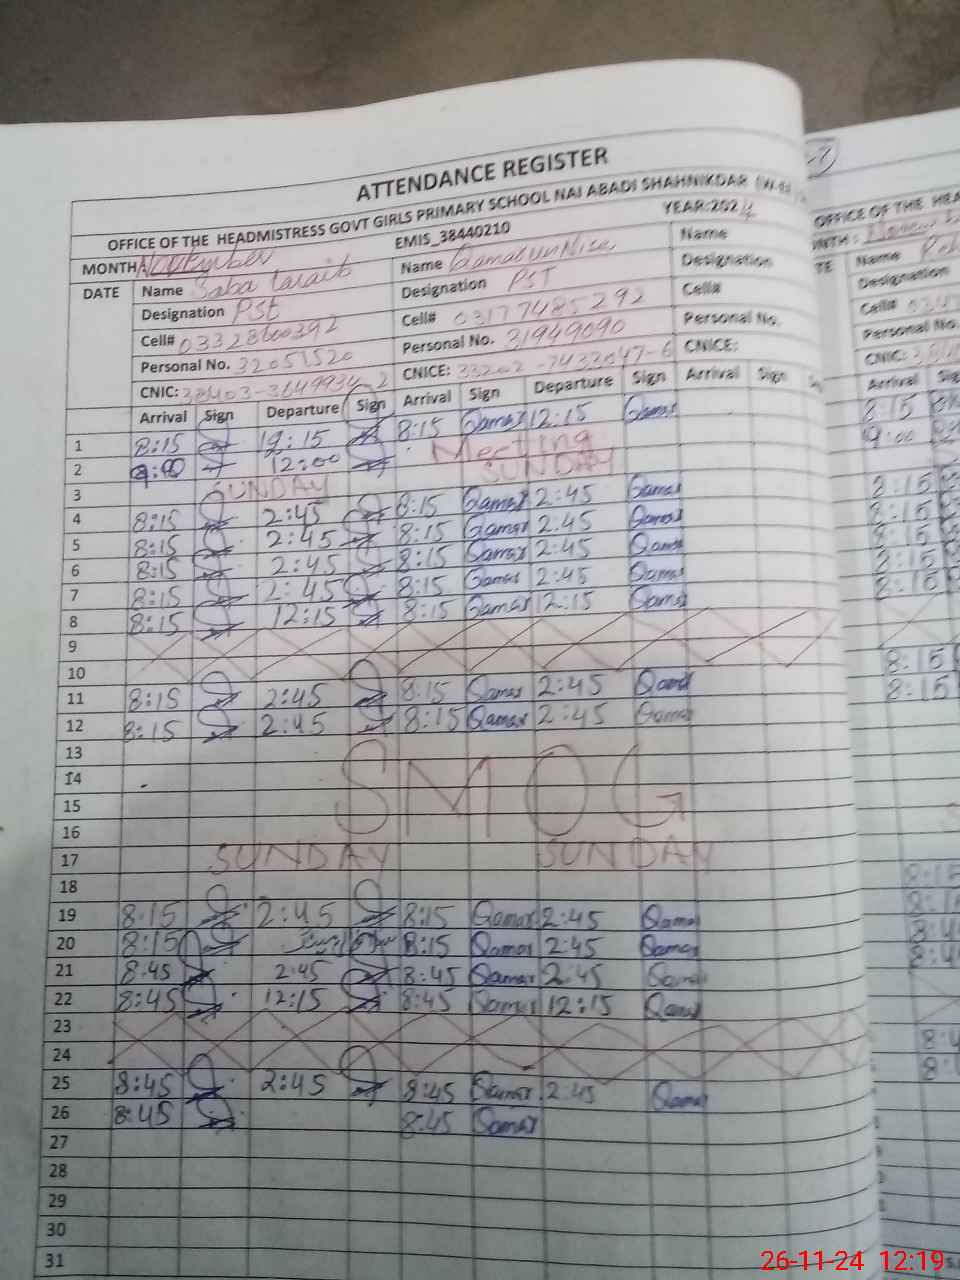 ATTENDANCE REGISTER
OFFICE OF THE HEADMISTRESS GOVT GIRLS PRIMARY SCHOOL NAI ABADI SHAHNIKDAR
EMIS_38440210 YEAR:2024
MONTH: November
DATE Name Saba Name Qamar un Nisa Name
Designation PST Designation PST Designation
Cell# 03328600392 Cell# 03177485292 Cell#
Personal No. 32051520 Personal No. 31949090 Personal No.
CNIC: CNICE: 33202-7432047-6 CNICE:
Arrival Sign Departure Sign Arrival Sign Departure Sign Arrival Sign
1 8:15 12:15 8:15 Qamar 12:15 Qamar
2 9:00 12:00 Meeting
3 SUNDAY SUNDAY
4 8:15 2:45 8:15 Qamar 2:45 Qamar
5 8:15 2:45 8:15 Qamar 2:45 Qamar
6 8:15 2:45 8:15 Qamar 2:45 Qamar
7 8:15 2:45 8:15 Qamar 2:45 Qamar
8 8:15 12:15 8:15 Qamar 12:15 Qamar
9
10
11 8:15 2:45 8:15 Qamar 2:45 Qamar
12 8:15 2:45 8:15 Qamar 2:45 Qamar
13
14 SMOG
15
16
17 SUNDAY SUNDAY
18
19 8:15 2:45 8:15 Qamar 2:45 Qamar
20 8:15 8:15 Qamar 2:45 Qamar
21 8:45 2:45 8:45 Qamar 2:45 Qamar
22 8:45 12:15 8:45 Qamar 12:15 Qamar
23
24
25 8:45 2:45 8:45 Qamar 2:45 Qamar
26 8:45 8:45 Qamar
27
28
29
30
31
OFFICE OF THE HEA
Name
Designation
Cell#
Personal No.
CNIC:
Arrival
8:15
9:00
8:15
8:15
8:15
8:15
8:15
8:15
8:15
26-11-24 12:19